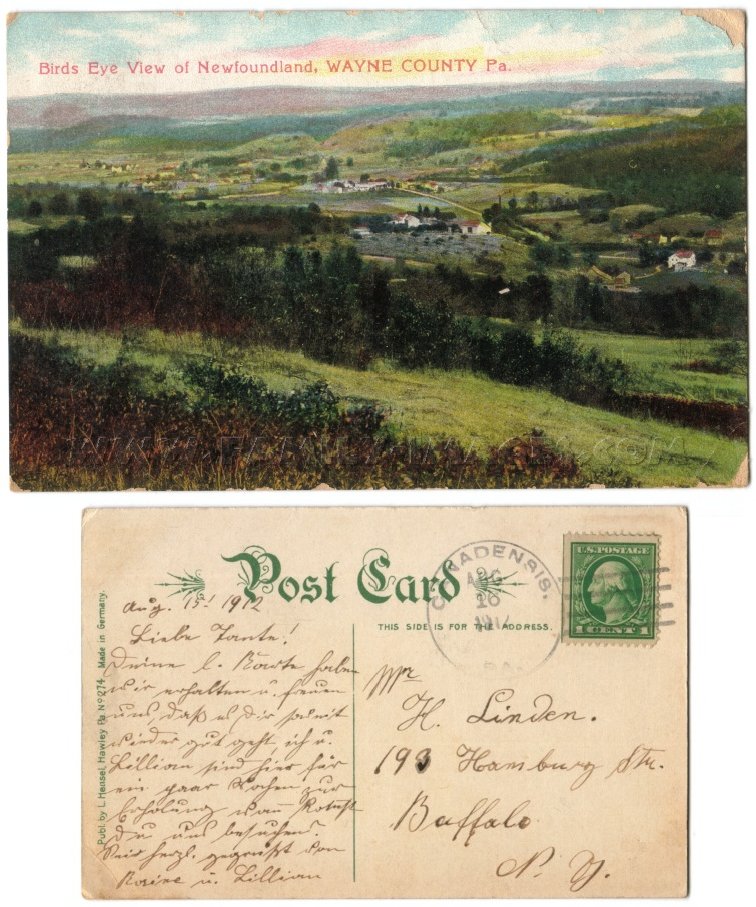 Birds Eye View of Newfoundland, WAYNE COUNTY Pa.
WWW.FAMILY-IMAGES.COM
Post Card
THIS SIDE IS FOR THE ADDRESS.
CANADENSIS.
AUG
16
1912
PA.
U.S. POSTAGE
1 CENT 1
Publ. by L. Hensel, Hawley Pa No 274 Made in Germany.
Aug. 15! 1912
Liebe Tante!
Deine l. Karte haben
wir erhalten u. freuen
uns, daß es Dir somit
wieder gut geht, ich u.
Lillian sind hier für
ein paar Wochen zur
Erholung wann
Du uns besuchen?
Seid herzl. gegrüßt von
u. Lillian
Mr
H. Linden.
193 Hamburg Str.
Buffalo
N. Y.